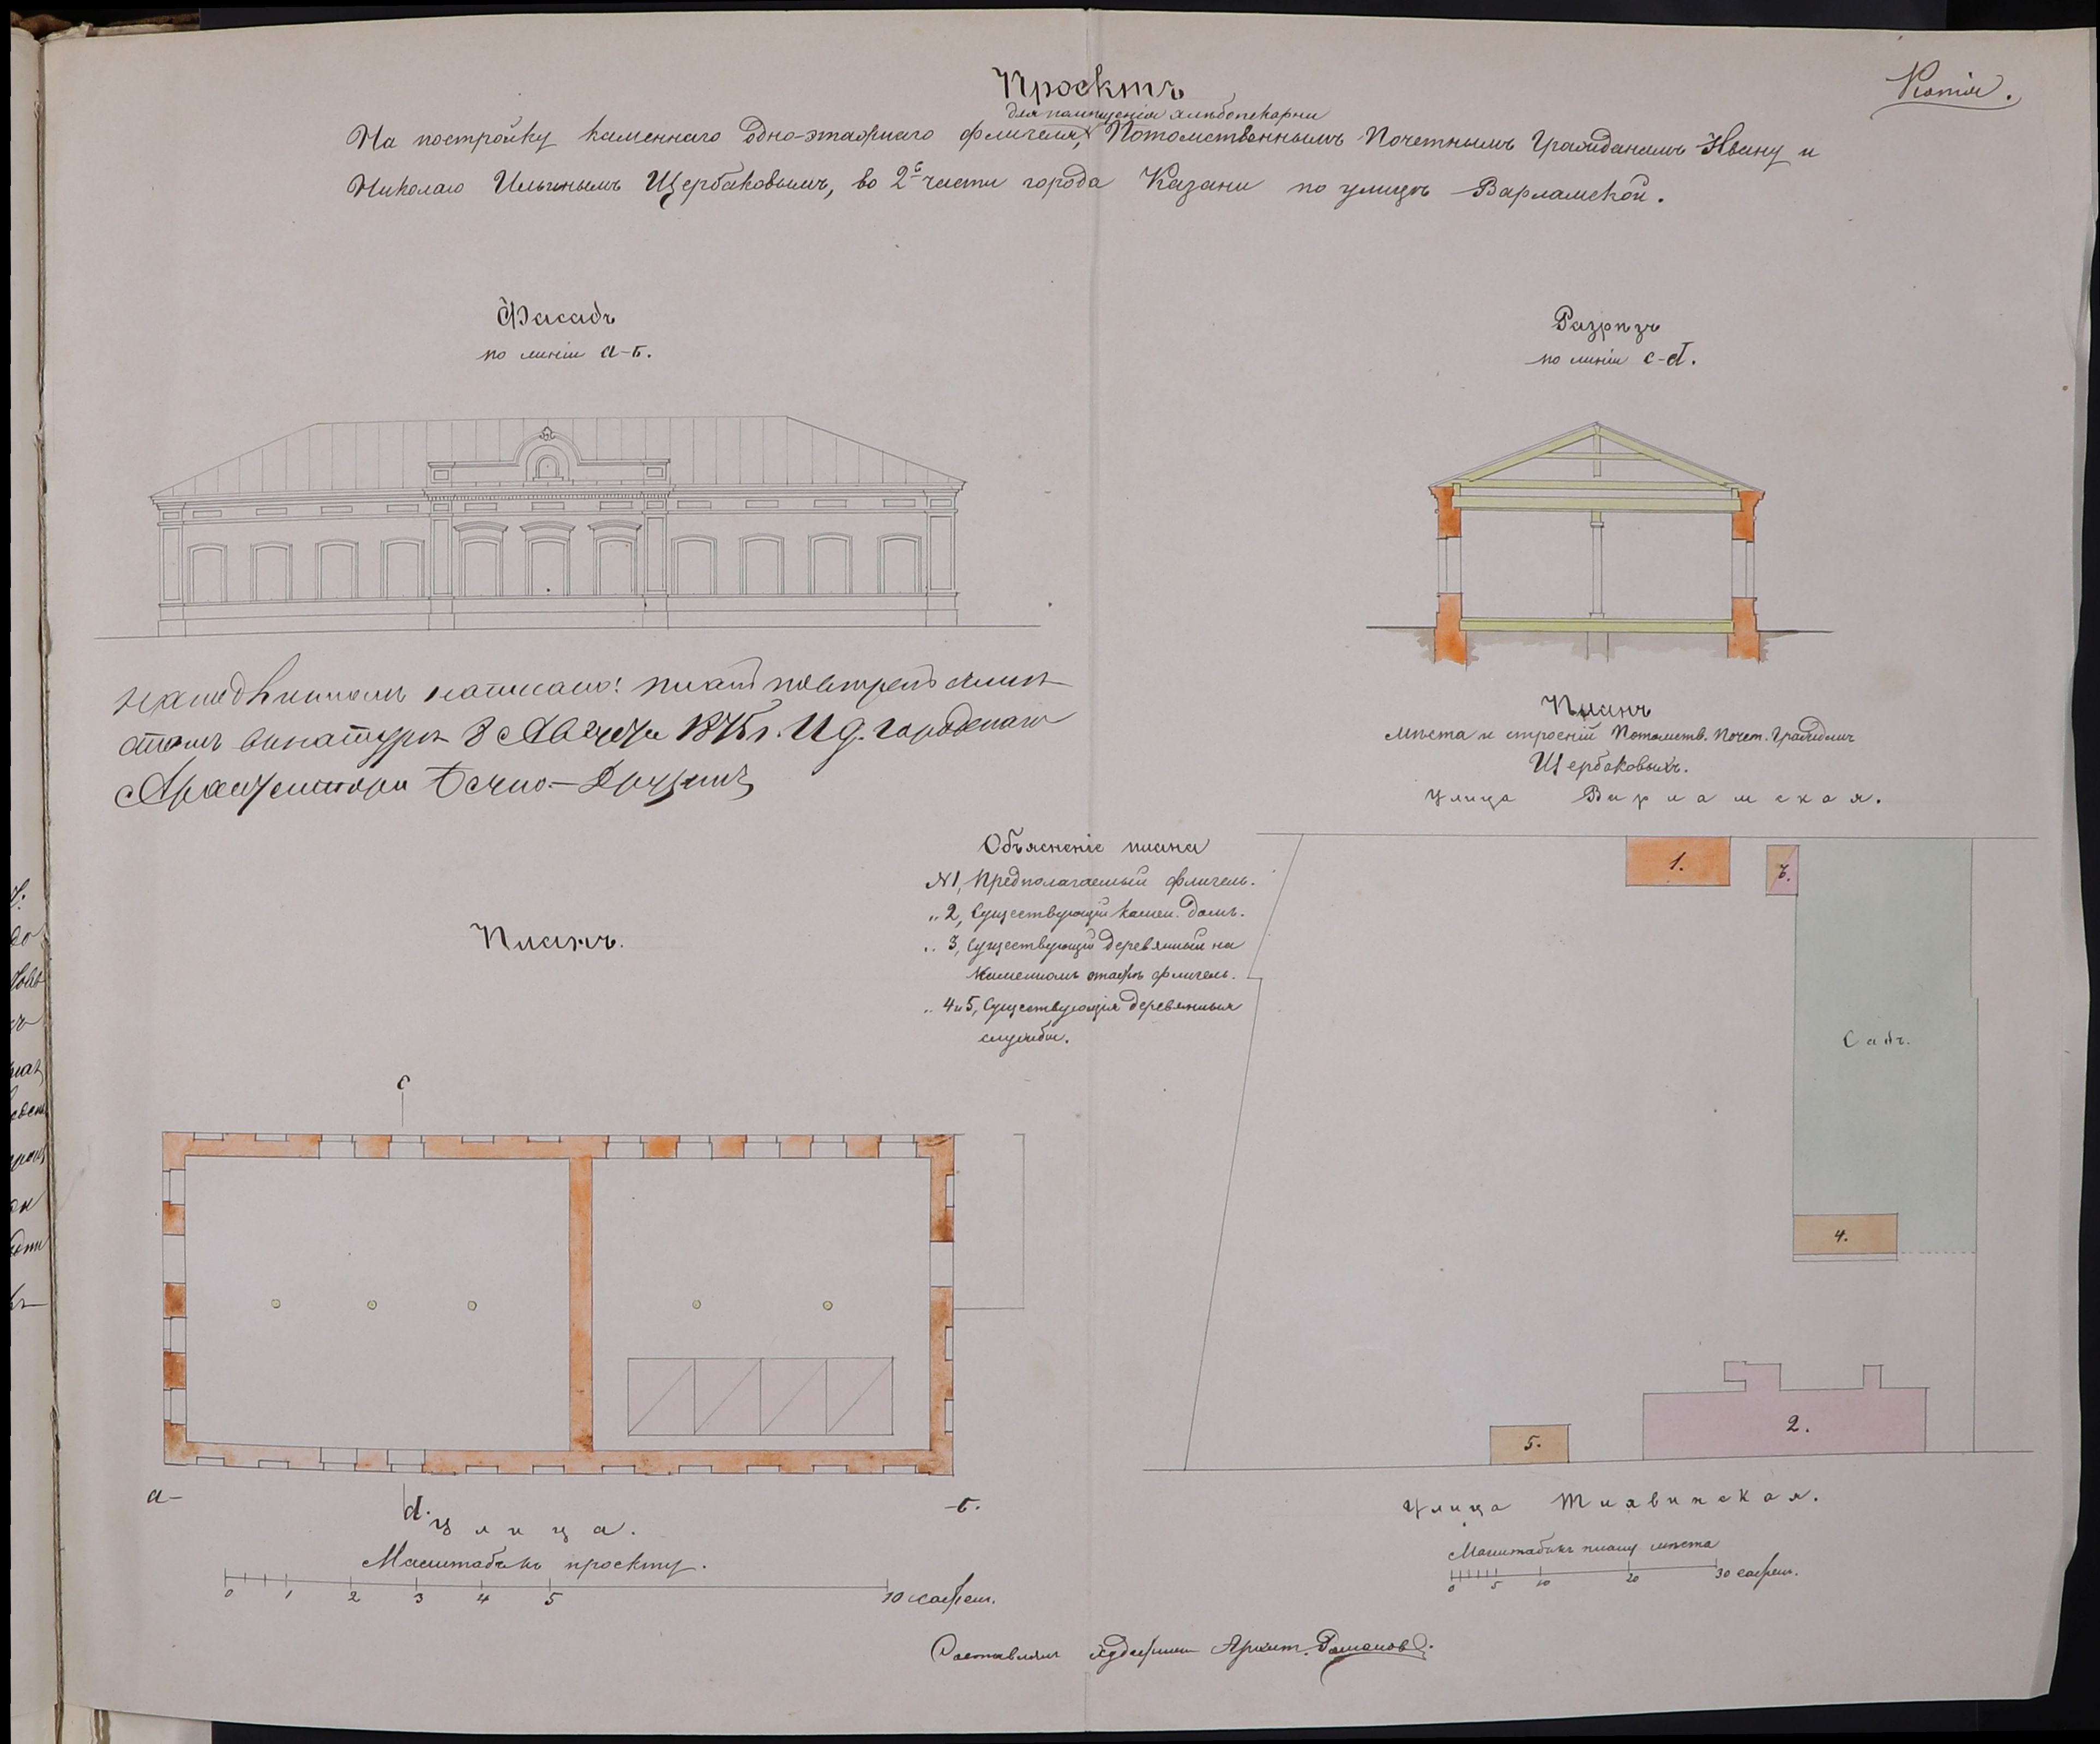 Проэктъ
Копія.
для помѣщенія хлѣбопекарни
На постройку каменнаго одно-этажнаго флигеля, Потомственнымъ Почетнымъ Гражданамъ Ивану и
Николаю Ильинымъ Щербаковымъ, во 2й части города Казани по улицѣ Варламской.
Фасадъ
по линіи а-б.
Разрѣзъ
по линіи c-d.
На подлинномъ написано: планъ повѣренъ съ мѣ-
стомъ въ натурѣ 8 Августа 1875 г. И д. Городскаго
Архитектора Бечко-Друзинъ
Планъ
мѣста и строеній Потомств. Почет. Гражданъ
Щербаковыхъ.
Улица Варламская.
Объясненіе плана
№1, Предполагаемый флигель.
„ 2, Существующій камен. домъ.
„ 3, Существующій деревянный на
каменномъ этажѣ флигель.
„ 4 и 5, Существующія деревянныя
службы.
1.
3.
Садъ.
4.
2.
5.
Планъ.
c
а-
-б.
d.
улица.
Масштабъ къ проэкту.
0 1 2 3 4 5 10 сажен.
Улица Тихвинская.
Масштабъ къ плану мѣста
0 5 10 20 30 сажен.
Составлялъ Художникъ Архит. Романовъ.